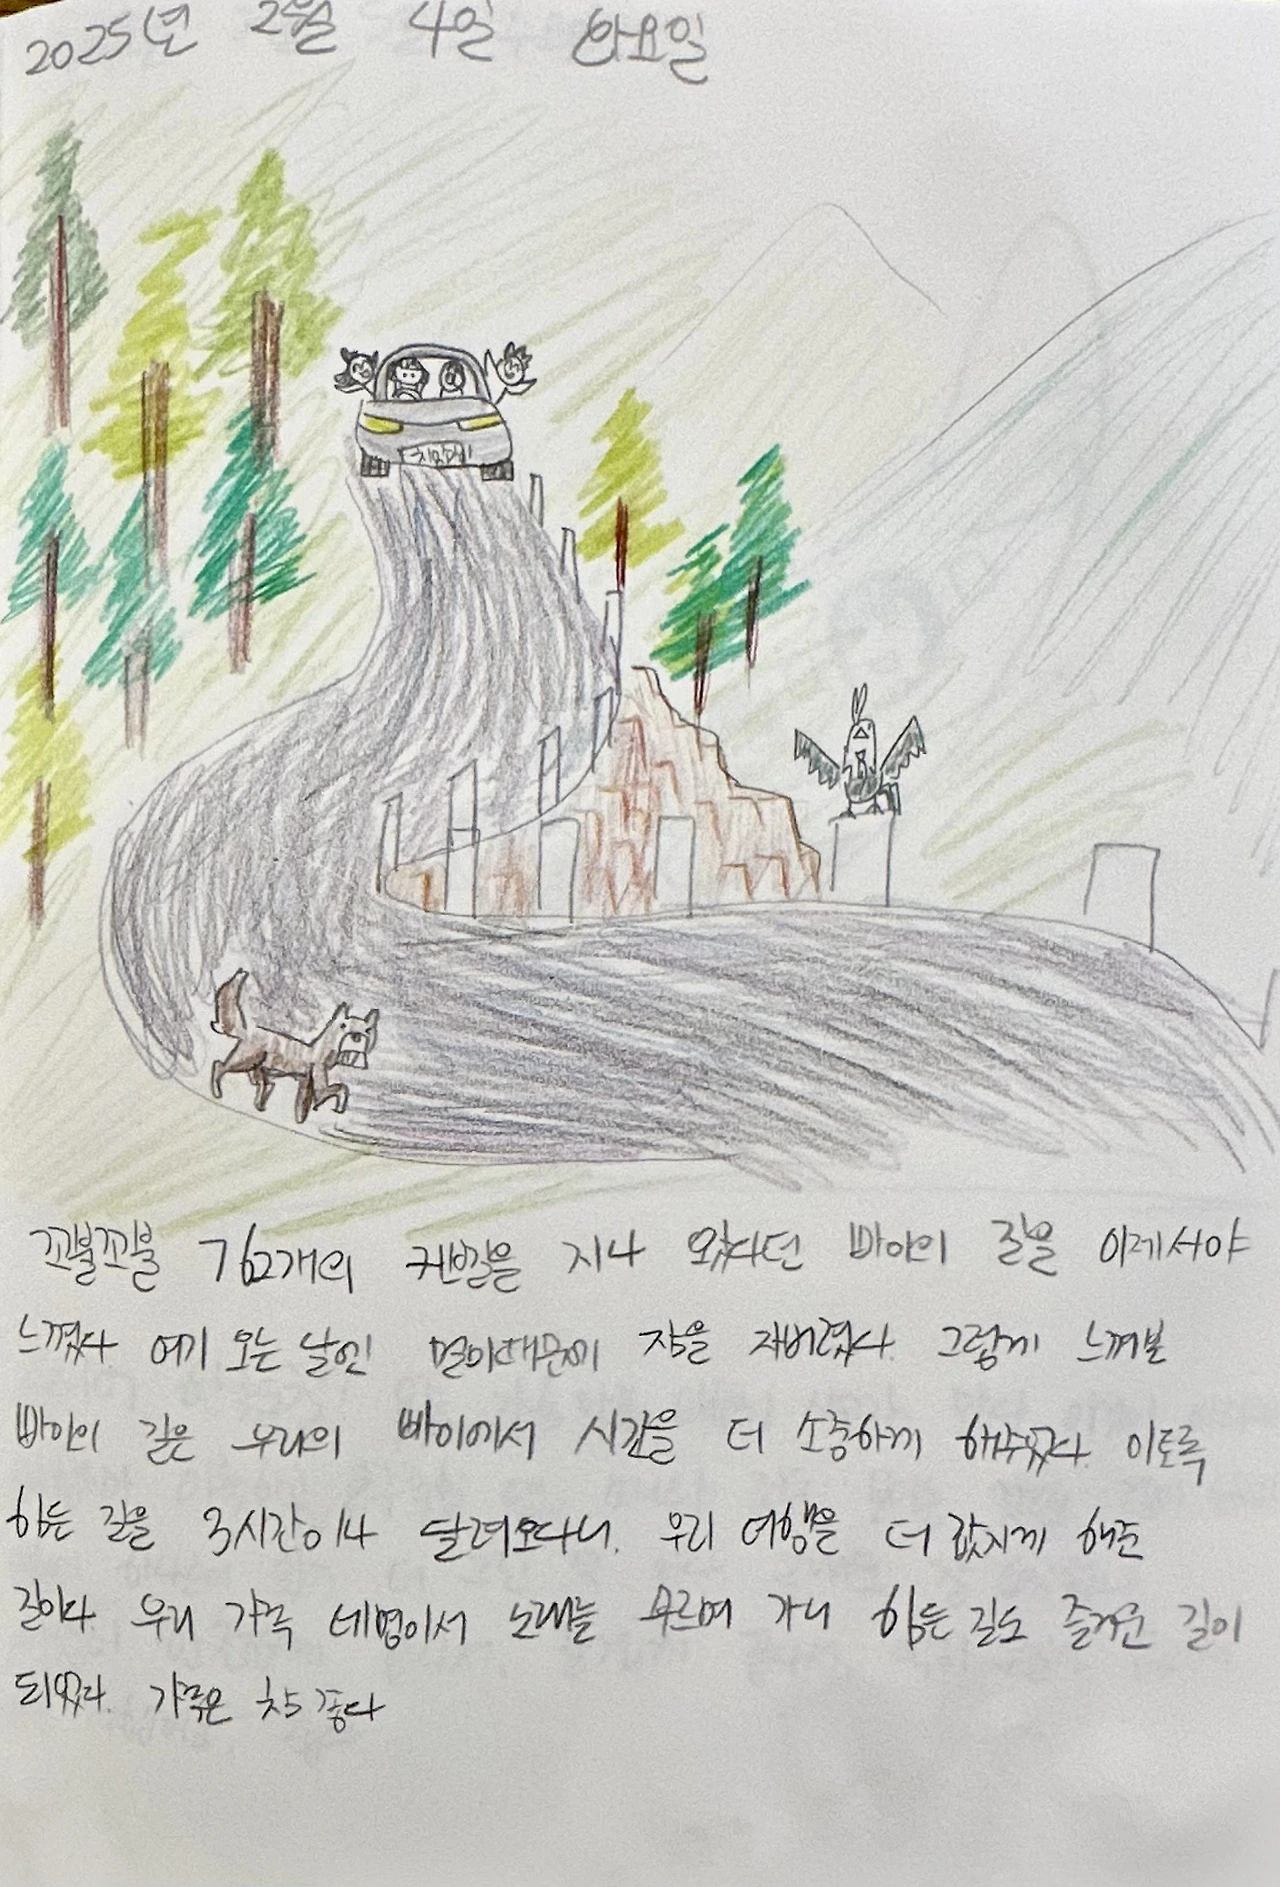 2025년 2월 4일 화요일
치앙마이
꼬불꼬불 762개의 커브길을 지나 왔다던 빠이의 길을 이제서야
느꼈다. 여기 오는 날엔 멀미때문에 잠을 자버렸다. 그렇게 느껴본
빠이의 길은 우리의 빠이에서 시간을 더 소중하게 해주었다. 이토록
힘든 길을 3시간이나 달려오다니. 우리 여행을 더 값지게 해준
길이다. 우리 가족 네명이서 노래를 부르며 가니 힘든 길도 즐거운 길이
되었다. 가족은 참 좋다